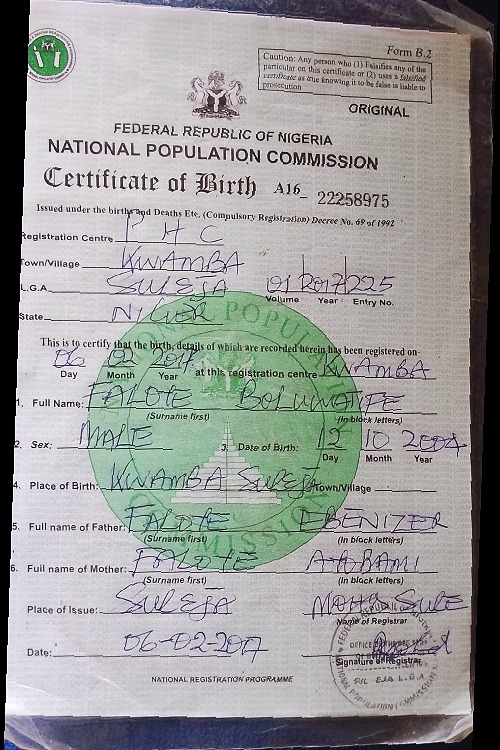 Form B.2
Caution: Any person who (1) Falsifies any of the
particular on this certificate or (2) uses a falsified
certificate as true knowing it to be false is liable to
prosecution
ORIGINAL
FEDERAL REPUBLIC OF NIGERIA
NATIONAL POPULATION COMMISSION
Certificate of Birth A16_ 22258975
Issued under the births and Deaths Etc. (Compulsory Registration) Decree No. 69 of 1992
Registration Centre P H C
Town/Village KWAMBA
L.G.A SULEJA 01 2017 225
Volume Year Entry No.
State NIGER
This is to certify that the birth, details of which are recorded herein has been registered on
06 02 2017 at this registration centre KWAMBA
Day Month Year
1. Full Name: FALOTE BOLUWATIFE
(Surname first) (In block letters)
2. Sex: MALE 3. Date of Birth: 12 10 2004
Day Month Year
4. Place of Birth: KWAMBA SULEJA Town/Village
5. Full name of Father: FALOTE EBENIZER
(Surname first) (In block letters)
6. Full name of Mother: FALOTE
(Surname first) (In block letters)
Place of Issue: SULEJA MOHD SULE
Name of Registrar
Date: 06-02-2017
Signature of Registrar
SUL EJA L.G.A
NATIONAL REGISTRATION PROGRAMME